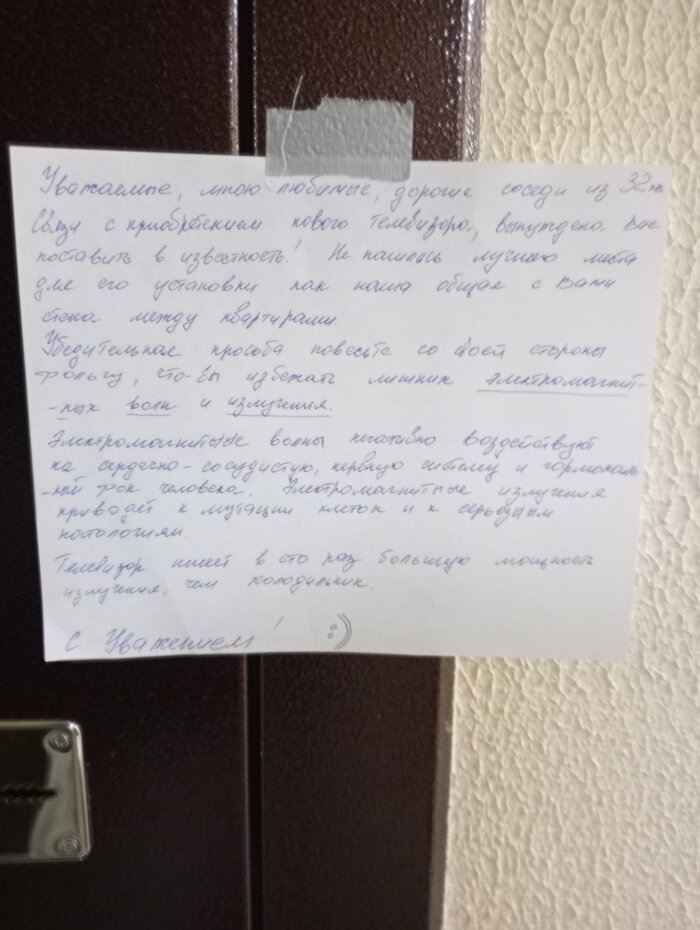 Уважаемые, мною любимые, дорогие соседи из 32 кв.
Связи с приобретением нового телевизора, вынуждена Вас
поставить в известность! Не нашлось лучшего места
для его установки как наша общая с Вами
стена между квартирами.
Убедительная просьба повесьте со своей стороны
фольгу, что-бы избежать лишних электромагнит-
-ных волн и излучения.
Электромагнитные волны негативно воздействуют
на сердечно-сосудистую, нервную систему и гормональ
-ный фон человека. Электромагнитные излучения
приводят к мутации клеток и к серьёзным
патологиям.
Телевизор имеет в сто раз большую мощность
излучения, чем холодильник.
С Уважением! :)